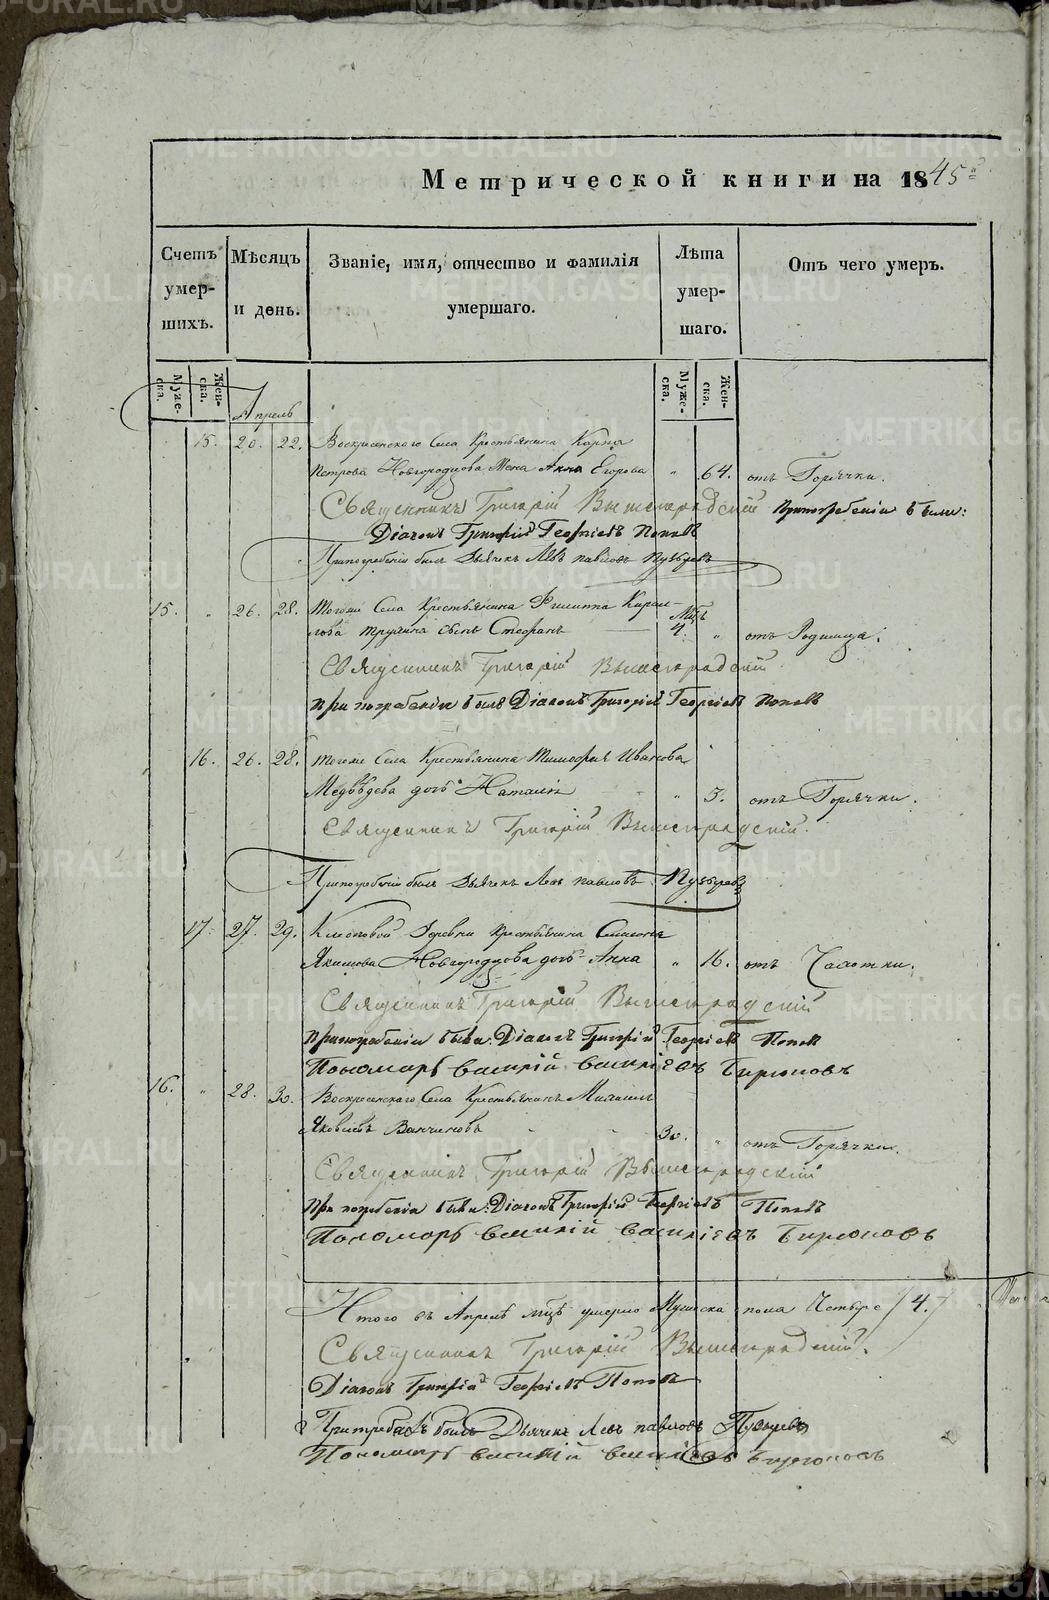 Метрической книги на 1845й
Счетъ умер- шихъ.
Мѣсяцъ и день.
Званіе, имя, отчество и фамилія умершаго.
Лѣта умер- шаго.
Отъ чего умеръ.
Муже- ска.
Жен- ска.
Муже- ска.
Жен- ска.
Апрель
15. 20. 22. Воскресенского Села Крестьянина Карпа
Петрова Новгородцова Жена Анна Егорова " 64. отъ Горячки.
Священникъ Григорій Вышегородскій При погребеніи были:
Діаконъ Григорій Георгіевъ Поповъ
При погребеніи былъ Дьячекъ Левъ павловъ Пузыревъ
15. " 26. 28. Тогожъ Села Крестьянина Филиппа Кирил-
лова сынъ Стефанъ Мцъ 4. " отъ Родимца.
Священникъ Григорій Вышегородскій
при погребеніи былъ Діаконъ Григорій Георгіевъ Поповъ
16. 26. 28. тогожъ Села Крестьянина Тимофея Иванова
Медвѣдева дочь Наталія " 3. отъ Горячки.
Священникъ Григорій Вышегородскій.
При погребеніи былъ Дьячекъ Левъ павловъ Пузыревъ
17. 27. 29. деревни крестьянина Симеона
Якимова Новгородцова дочь Анна " 16. отъ Чахотки.
Священникъ Григорій Вышегородскій
При погребеніи были: Діаконъ Григорій Георгіевъ Поповъ
Пономарь василій василіевъ Бирюковъ
16. " 28. 30. Воскресенского Села Крестьянинъ Михаилъ
Яковлевъ Ванчиновъ 30. " отъ Горячки.
Священникъ Григорій Вышегородскій
При погребеніи были: Діаконъ Григорій Георгіевъ Поповъ
Пономарь василій василіевъ Бирюковъ
Итого въ Апрелѣ мцѣ умерло Мужеска пола Четыре /4./
Священникъ Григорій Вышегородскій.
Діаконъ Григорій Георгіевъ Поповъ
При погребеніи былъ Дьячекъ Левъ павловъ Пузыревъ
Пономарь василій василіевъ Бирюковъ
METRIKI.GASO-URAL.RU